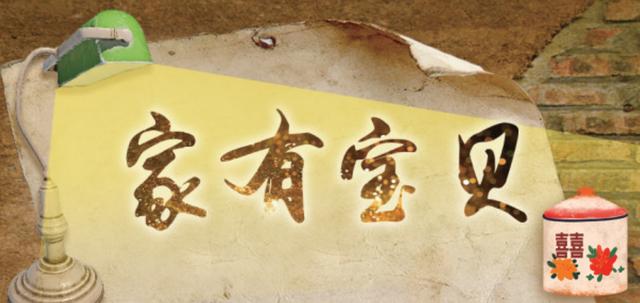 家有宝贝
囍